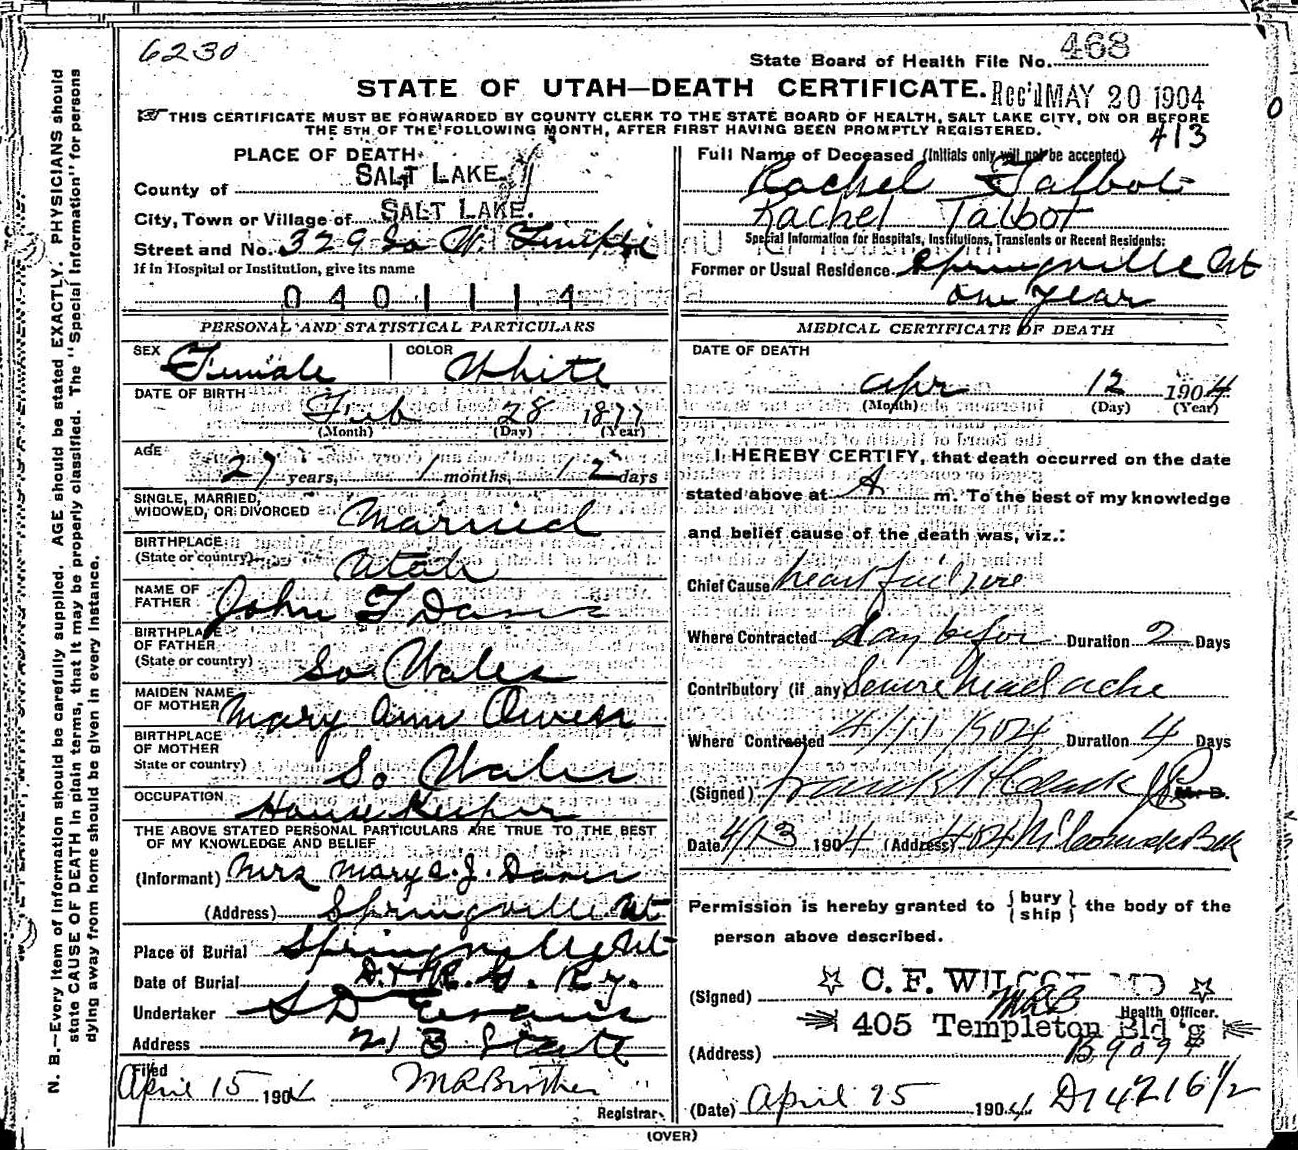 6230
State Board of Health File No. 468
STATE OF UTAH—DEATH CERTIFICATE.
Rec'd MAY 20 1904
THIS CERTIFICATE MUST BE FORWARDED BY COUNTY CLERK TO THE STATE BOARD OF HEALTH, SALT LAKE CITY, ON OR BEFORE
THE 5TH OF THE FOLLOWING MONTH, AFTER FIRST HAVING BEEN PROMPTLY REGISTERED.
413
PLACE OF DEATH
County of SALT LAKE.
City, Town or Village of SALT LAKE.
Street and No. 329 So W. Temple
If in Hospital or Institution, give its name
0401114
PERSONAL AND STATISTICAL PARTICULARS
SEX Female
COLOR White
DATE OF BIRTH
Feb 28 1877
(Month) (Day) (Year)
AGE
27 years, 1 months, 12 days
SINGLE, MARRIED,
WIDOWED, OR DIVORCED Married
BIRTHPLACE
(State or country) Utah
NAME OF
FATHER John T Davis
BIRTHPLACE
OF FATHER
(State or country) So. Wales
MAIDEN NAME
OF MOTHER Mary Ann Owens
BIRTHPLACE
OF MOTHER
State or country) So Wales
OCCUPATION House Keeper
THE ABOVE STATED PERSONAL PARTICULARS ARE TRUE TO THE BEST
OF MY KNOWLEDGE AND BELIEF
(Informant) Mrs Mary A. J. Davis
(Address) Springville Ut
Place of Burial Springville Ut
Date of Burial D. & R. G. Ry.
Undertaker S D Evans
Address 213 State
Filed
April 15 1904
Registrar
Full Name of Deceased (Initials only will not be accepted)
Rachel Talbot
Rachel Talbot
Special Information for Hospitals, Institutions, Transients or Recent Residents:
Former or Usual Residence. Springville Ut
one year
MEDICAL CERTIFICATE OF DEATH
DATE OF DEATH
Apr 12 1904
(Month) (Day) (Year)
I HEREBY CERTIFY, that death occurred on the date
stated above at A m. To the best of my knowledge
and belief cause of the death was, viz.:
Chief Cause heart failure
Where Contracted day before Duration 2 Days
Contributory (if any) Severe headache
Where Contracted 4/11/1904 Duration 4 Days
(Signed) Frank M Clark M. D.
Date 4/13 1904 (Address) 404
Permission is hereby granted to { bury ship } the body of the
person above described.
(Signed) C. F. WILCOX MD
MRB
Health Officer.
405 Templeton Bld'g
(Address)
(Date) April 25 1904 D14216 1/2
(OVER)
N. B.—Every item of information should be carefully supplied. AGE should be stated EXACTLY. PHYSICIANS should
state CAUSE OF DEATH in plain terms, that it may be properly classified. The "Special Information" for persons
dying away from home should be given in every instance.